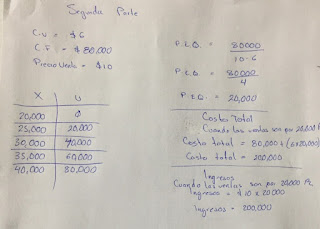 Segunda Parte
C.V = $6
C.F. = $80,000
Precio Venta = $10
X U
20,000 0
25,000 20,000
30,000 40,000
35,000 60,000
40,000 80,000
P.E.Q. = 80000
10-6
P.E.Q. = 80000
4
P.E.Q. = 20,000
Costo Total
Cuando las ventas son por 20,000
Costo total = 80,000 + (6x20,000)
Costo total = 200,000
Ingresos
Cuando las ventas son por 20,000 Pz.
Ingresos = $10 x 20000
Ingresos = 200,000